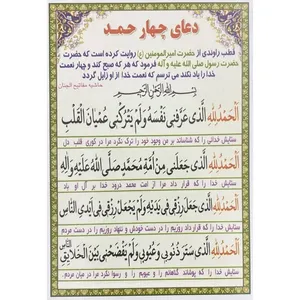 دعای چهار حمد
قطب راوندی از حضرت امیرالمومنین (ع) روایت کرده است که حضرت
حضرت رسول صلی الله علیه و آله فرمود که هر که صبح کند و چهار نعمت
خدا را یاد نکند می ترسم که نعمت خدا از او زایل گردد
حاشیه مفاتیح الجنان
بسم الله الرحمن الرحیم
اَلْحَمْدُ لِلّهِ الَّذی عَرَّفَنی نَفْسَهُ وَلَمْ یَتْرُکْنی عُمْیانَ الْقَلْبِ
ستایش خدائی را که شناساند بر من وجود خود را و ترک نکرد مرا در کوری قلب دل
اَلْحَمْدُ لِلّهِ الَّذی جَعَلَنی مِنْ اُمَّةِ مُحَمَّدٍ صَلَّی اللهُ عَلَیْهِ وَآلِهِ
ستایش خدا را که قرار داد مرا از امت محمد درود خدا بر آل او باد
اَلْحَمْدُ لِلّهِ الَّذی جَعَلَ رِزْقی فی یَدَیْهِ وَلَمْ یَجْعَلْ رِزْقی فی اَیْدِی النّاسِ
ستایش خدا را که قرار داد روزیم را در دست خودش و ننهاد روزیم را در دست مردم
اَلْحَمْدُ لِلّهِ الَّذی سَتَرَ ذُنُوبی وَعُیُوبی وَلَمْ یَفْضَحْنی بَیْنَ الْخَلائِقِ النّاس
ستایش خدا را که پوشاند گناهانم را و عیوبم را و رسوا نکرد مرا در میان مردم